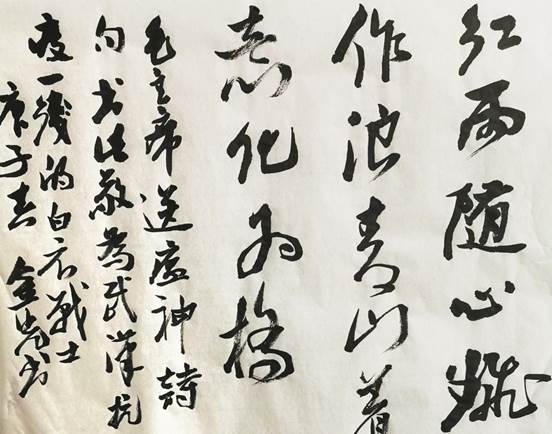 红雨随心翻
作浪青山着
意化为橋
毛主席送瘟神詩
句书法敬为武漢抗
疫一綫的白衣戰士
庚子春 金书